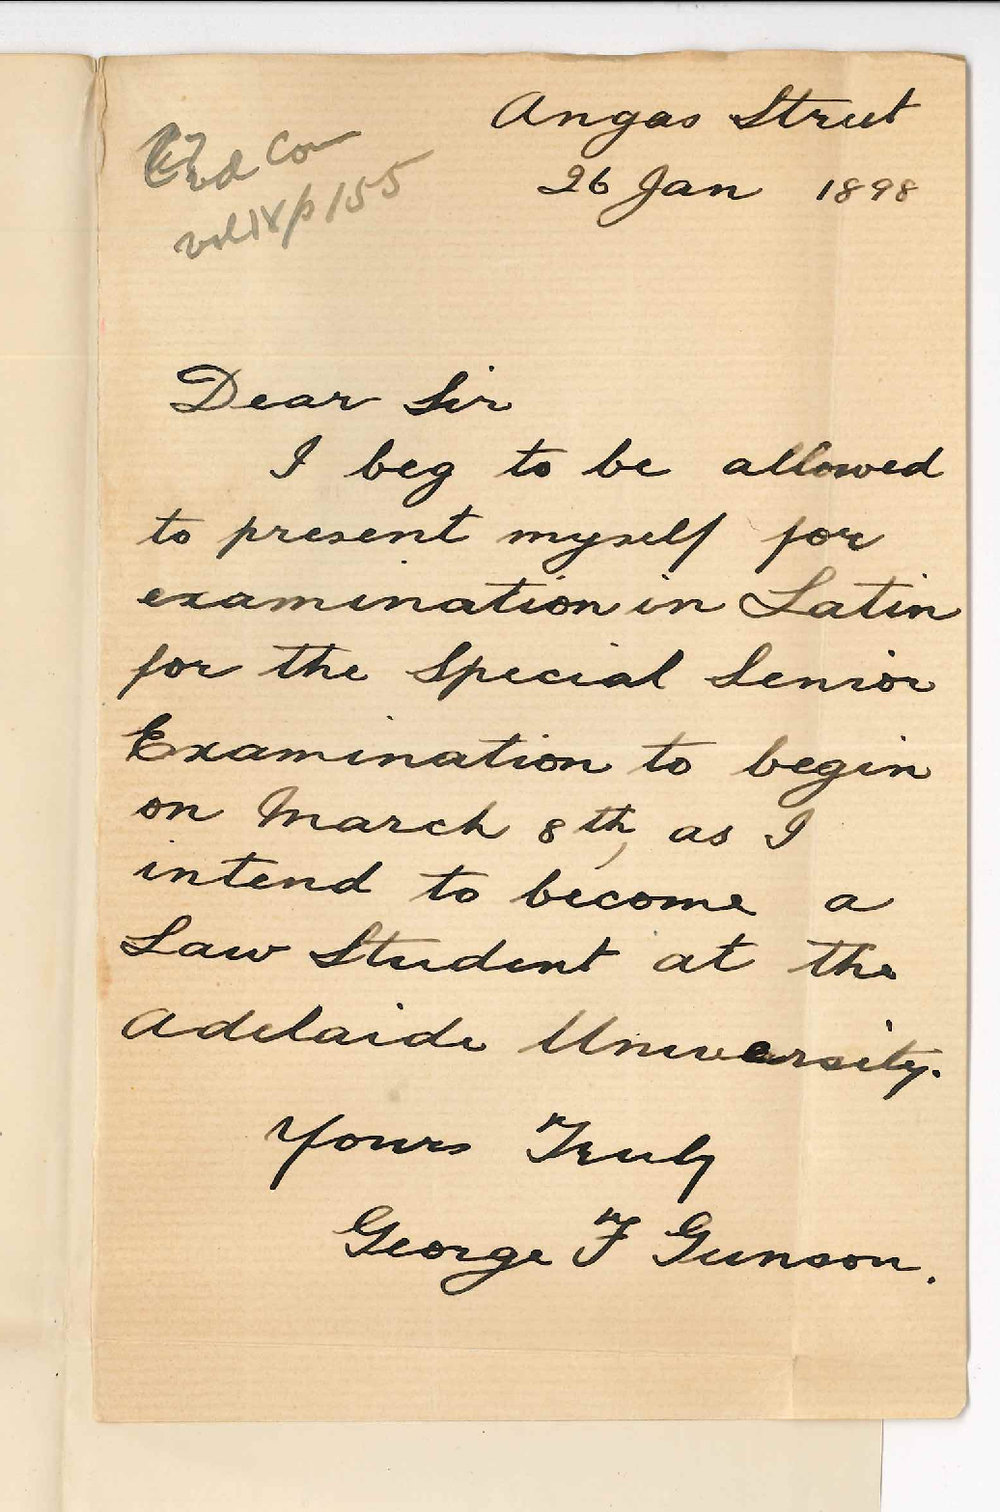 Angas Street
26 Jan 1898
Ed Com
vol IX p 155
Dear Sir
I beg to be allowed
to present myself for
examination in Latin
for the Special Senior
Examination to begin
on March 8th, as I
intend to become a
Law Student at the
Adelaide University.
Yours Truly
George F Gunson.